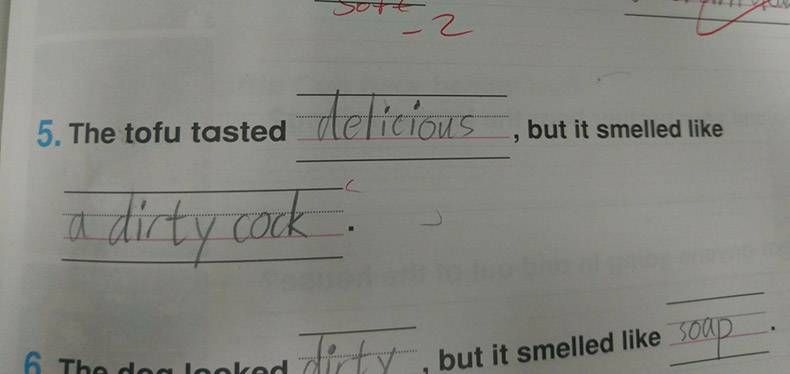 -2
5. The tofu tasted delicious, but it smelled like
a dirty cock.
6 The dog looked dirty, but it smelled like soap.